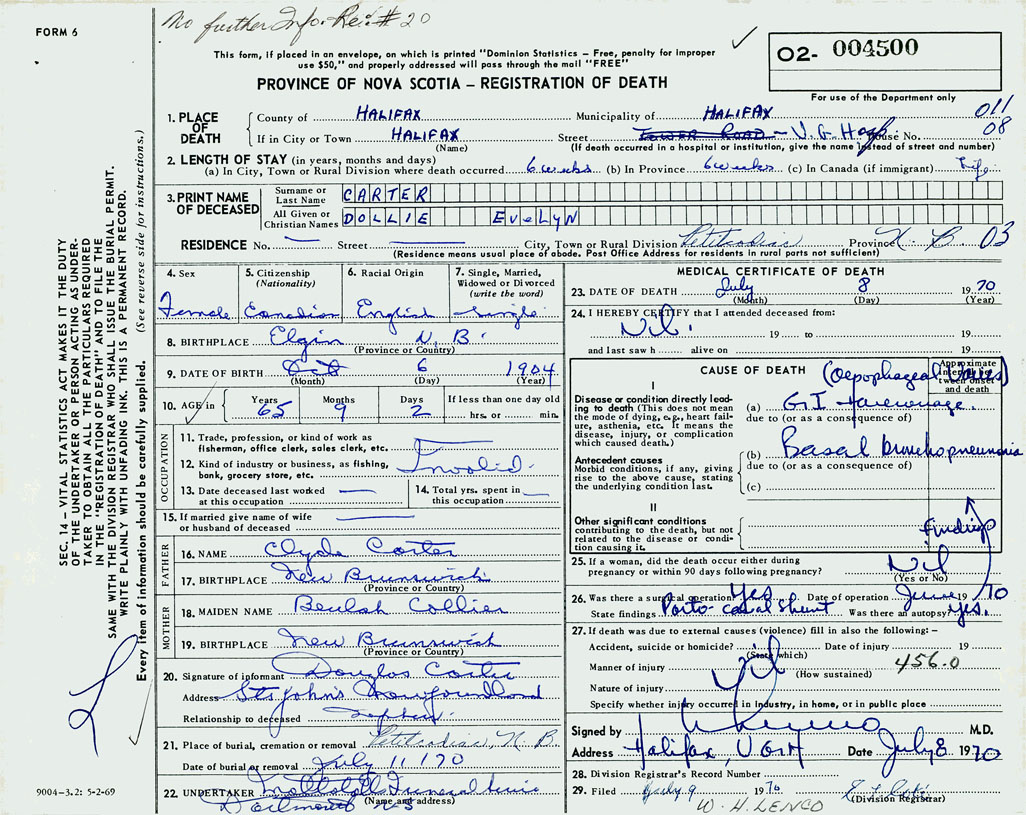 FORM 6
No further Info. Rec: # 20
This form, if placed in an envelope, on which is printed "Dominion Statistics – Free, penalty for improper
use $50," and properly addressed will pass through the mail "FREE"
O2- 004500
PROVINCE OF NOVA SCOTIA – REGISTRATION OF DEATH
For use of the Department only
1. PLACE OF DEATH
County of HALIFAX Municipality of HALIFAX 011
If in City or Town HALIFAX Street TOWER ROAD – V.G. Hosp House No. 08
(Name) (If death occurred in a hospital or institution, give the name instead of street and number)
2. LENGTH OF STAY (in years, months and days)
(a) In City, Town or Rural Division where death occurred 6 weeks (b) In Province 6 weeks (c) In Canada (if immigrant) Life
3. PRINT NAME OF DECEASED
Surname or Last Name CARTER
All Given or Christian Names DOLLIE EVELYN
RESIDENCE No. — Street — City, Town or Rural Division Petitcodiac Province N. B. 03
(Residence means usual place of abode. Post Office Address for residents in rural parts not sufficient)
4. Sex Female
5. Citizenship (Nationality) Canadian
6. Racial Origin English
7. Single, Married, Widowed or Divorced (write the word) Single
8. BIRTHPLACE Elgin N. B.
(Province or Country)
9. DATE OF BIRTH Oct 6 1904
(Month) (Day) (Year)
10. AGE in Years 65 Months 9 Days 2 If less than one day old hrs. or min.
OCCUPATION
11. Trade, profession, or kind of work as fisherman, office clerk, sales clerk, etc.
12. Kind of industry or business, as fishing, bank, grocery store, etc. Invalid.
13. Date deceased last worked at this occupation —
14. Total yrs. spent in this occupation —
15. If married give name of wife or husband of deceased —
FATHER
16. NAME Clyde Carter
17. BIRTHPLACE New Brunswick
(Province or Country)
MOTHER
18. MAIDEN NAME Beulah Collier
19. BIRTHPLACE New Brunswick
(Province or Country)
20. Signature of informant Douglas Carter
Address St. John's Newfoundland
Relationship to deceased Nephew
21. Place of burial, cremation or removal Petitcodiac, N. B.
Date of burial or removal July 11/70
22. UNDERTAKER Funeral
(Name and address)
Dartmouth N-S
MEDICAL CERTIFICATE OF DEATH
23. DATE OF DEATH July 8 1970
(Month) (Day) (Year)
24. I HEREBY CERTIFY that I attended deceased from:
Nil. 19 to 19
and last saw h alive on 19
CAUSE OF DEATH
Approximate interval between onset and death
(Oesophageal Varices)
I
Disease or condition directly leading to death (This does not mean the mode of dying, e.g., heart failure, asthenia, etc. It means the disease, injury, or complication which caused death.)
(a) G.I Haemorrhage.
due to (or as a consequence of)
Antecedent causes
Morbid conditions, if any, giving rise to the above cause, stating the underlying condition last.
(b) Basal bronchopneumonia
due to (or as a consequence of)
(c)
II
Other significant conditions contributing to the death, but not related to the disease or condition causing it.
findings
25. If a woman, did the death occur either during pregnancy or within 90 days following pregnancy? Nil
(Yes or No)
26. Was there a surgical operation? Yes Date of operation June 19 70
State findings Porto-caval shunt Was there an autopsy? Yes.
27. If death was due to external causes (violence) fill in also the following: –
Accident, suicide or homicide? Date of injury 19
(State which)
Manner of injury 456.0
(How sustained)
Nil
Nature of injury
Specify whether injury occurred in industry, in home, or in public place
Signed by M.D.
Address Halifax, VGH Date July 8 1970
28. Division Registrar's Record Number
29. Filed July 9 1970
(Division Registrar)
W. H. LENCO
SEC. 14 – VITAL STATISTICS ACT MAKES IT THE DUTY
OF THE UNDERTAKER OR PERSON ACTING AS UNDER-
TAKER TO OBTAIN ALL THE PARTICULARS REQUIRED
IN THE "REGISTRATION OF DEATH" AND TO FILE THE
SAME WITH THE DIVISION REGISTRAR WHO SHALL ISSUE THE BURIAL PERMIT.
WRITE PLAINLY WITH UNFADING INK. THIS IS A PERMANENT RECORD.
Every item of information should be carefully supplied. (See reverse side for instructions.)
9004-3.2: 5-2-69